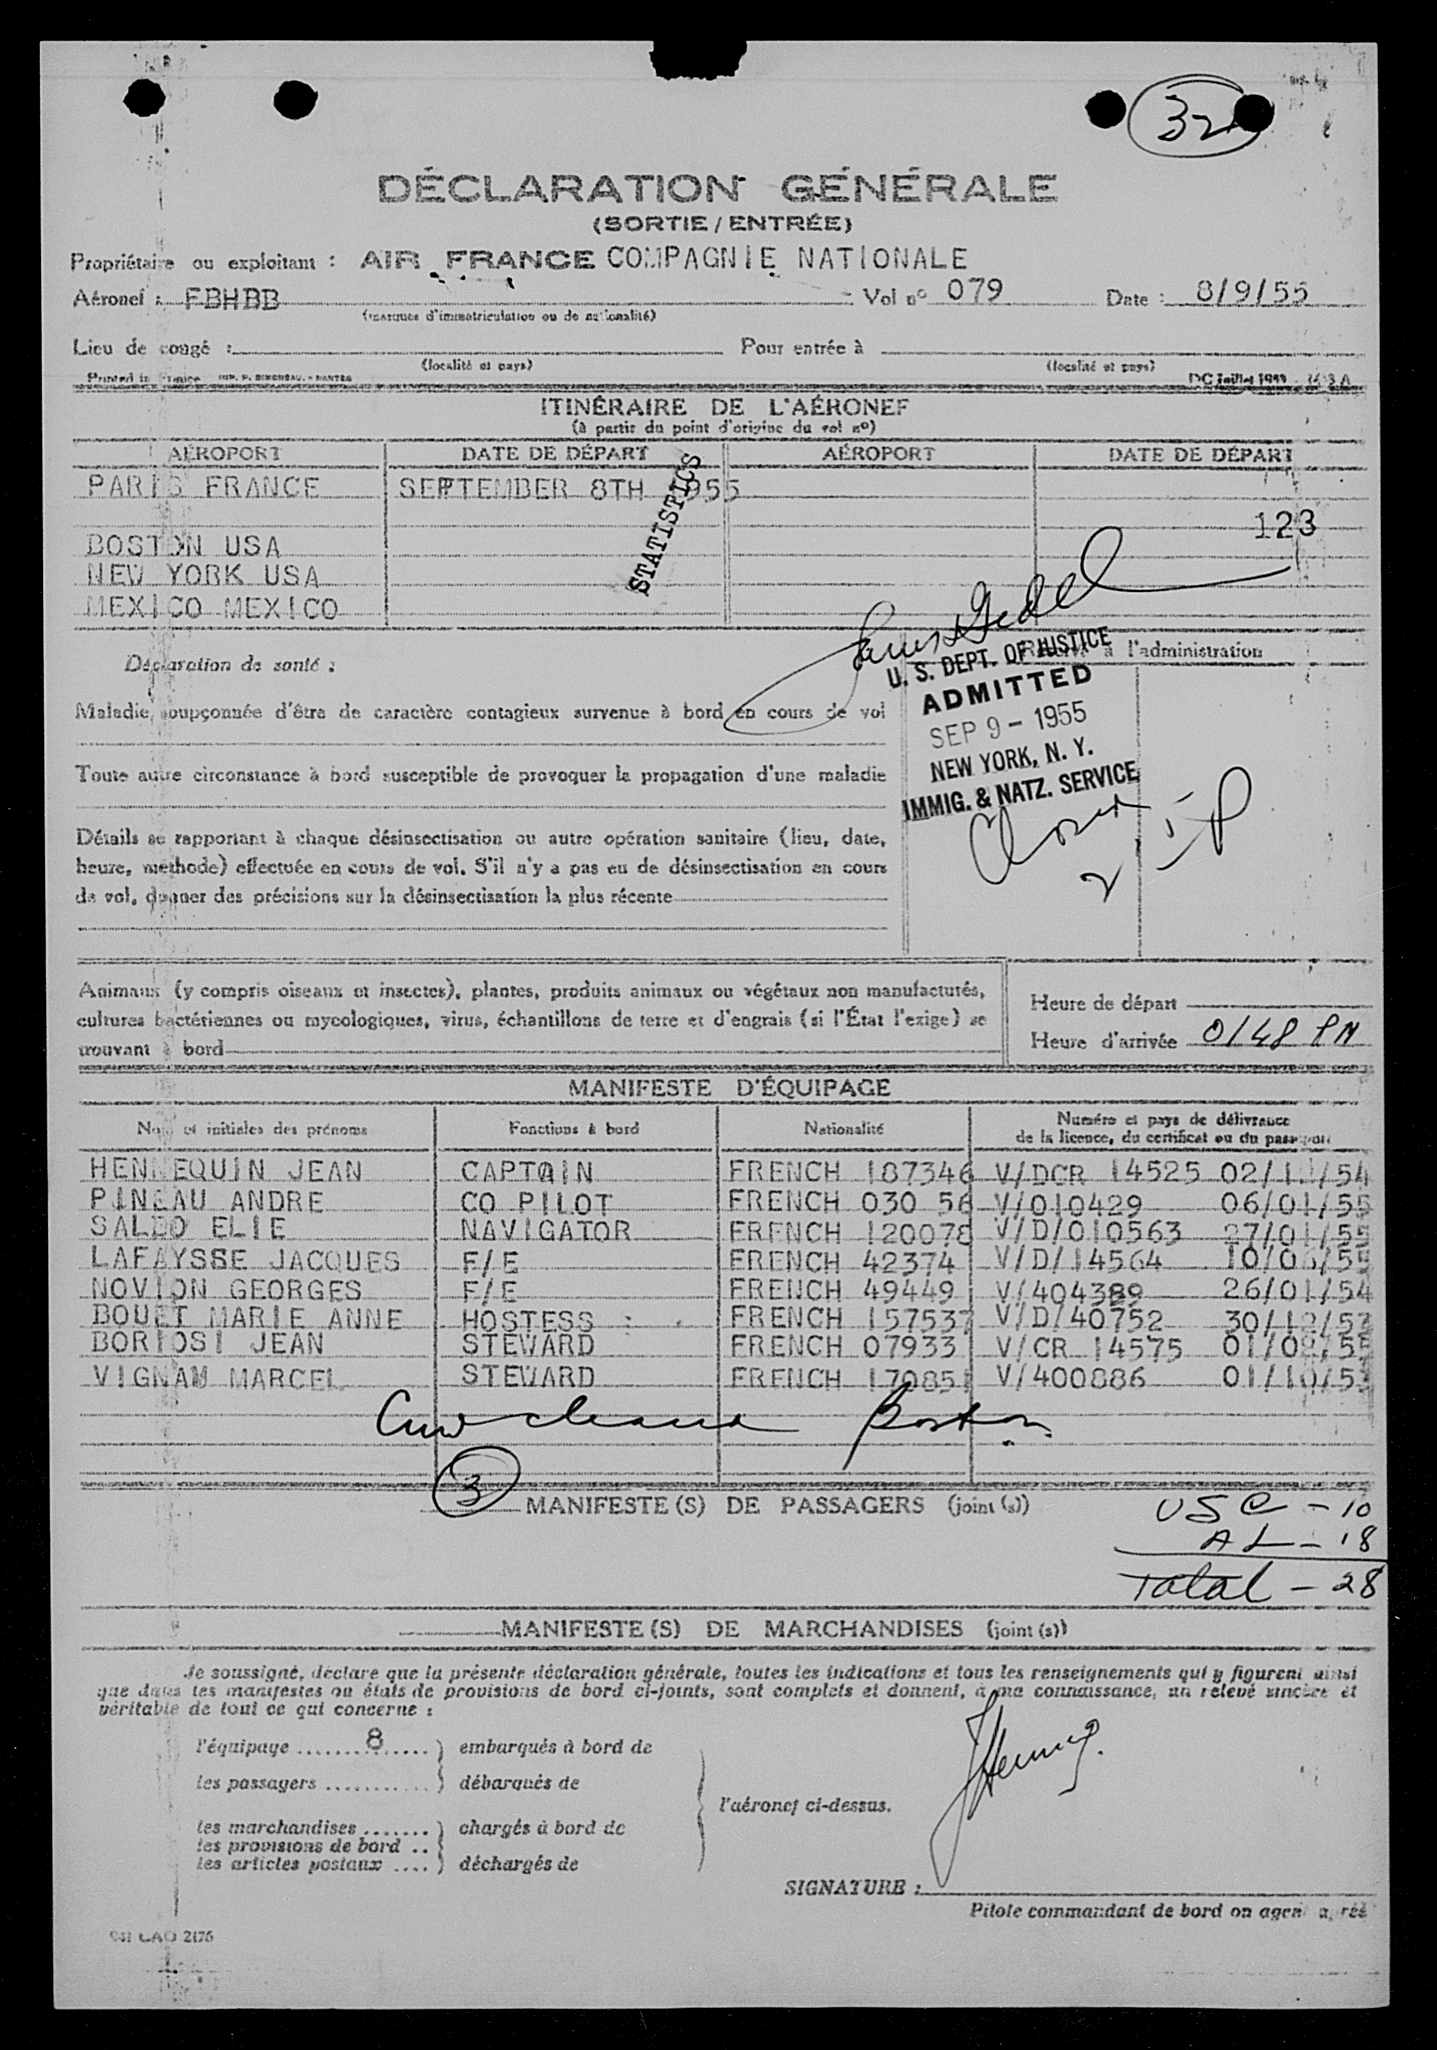 32
DÉCLARATION GÉNÉRALE
(SORTIE/ENTRÉE)
Propriétaire ou exploitant : AIR FRANCE COMPAGNIE NATIONALE
Aéronef : FBHBB Vol nº 079 Date : 8/9/55
(marques d'immatriculation ou de nationalité)
Lieu de congé : Pour entrée à
(localité et pays) (localité et pays)
Printed in France
ITINÉRAIRE DE L'AÉRONEF
(à partir du point d'origine du vol nº)
AÉROPORT DATE DE DÉPART AÉROPORT DATE DE DÉPART
PARIS FRANCE SEPTEMBER 8TH 1955
STATISTICS
123
BOSTON USA
NEW YORK USA
MEXICO MEXICO
Déclaration de santé : Réservé à l'administration
U. S. DEPT. OF JUSTICE
ADMITTED
SEP 9 - 1955
NEW YORK, N. Y.
IMMIG. & NATZ. SERVICE
Maladie, soupçonnée d'être de caractère contagieux survenue à bord en cours de vol
Toute autre circonstance à bord susceptible de provoquer la propagation d'une maladie
Détails se rapportant à chaque désinsectisation ou autre opération sanitaire (lieu, date,
heure, méthode) effectuée en cours de vol. S'il n'y a pas eu de désinsectisation en cours
de vol, donner des précisions sur la désinsectisation la plus récente
Animaux (y compris oiseaux et insectes), plantes, produits animaux ou végétaux non manufacturés,
cultures bactériennes ou mycologiques, virus, échantillons de terre et d'engrais (si l'État l'exige) se
trouvant à bord
Heure de départ
Heure d'arrivée 0148 PM
MANIFESTE D'ÉQUIPAGE
Nom et initiales des prénoms Fonctions à bord Nationalité Numéro et pays de délivrance
de la licence, du certificat ou du passeport
HENNEQUIN JEAN CAPTAIN FRENCH 187346 V/DCR 14525
PINEAU ANDRE CO PILOT FRENCH 030 56 V/010429 06/01/55
SALEO ELIE NAVIGATOR FRENCH 120078 V/D/010563 27/01/55
LAFAYSSE JACQUES F/E FRENCH 42374 V/D/14564 10/06/55
NOVION GEORGES F/E FRENCH 49449 V/404389 26/01/54
BOUET MARIE ANNE HOSTESS FRENCH 157537 V/D/40752
BORIOSI JEAN STEWARD FRENCH 07933 V/CR 14575
VIGNAM MARCEL STEWARD FRENCH 170851 V/400886 01/10/53
Crew cleared Boston
3 MANIFESTE(S) DE PASSAGERS (joint(s))
USC - 10
AL - 18
Total - 28
MANIFESTE(S) DE MARCHANDISES (joint(s))
Je soussigné, déclare que la présente déclaration générale, toutes les indications et tous les renseignements qui y figurent ainsi
que dans les manifestes ou états de provisions de bord ci-joints, sont complets et donnent, à ma connaissance, un relevé sincère et
véritable de tout ce qui concerne :
l'équipage ........8...... ) embarqués à bord de
les passagers ............ ) débarqués de
l'aéronef ci-dessus.
les marchandises ....... ) chargés à bord de
les provisions de bord ..
les articles postaux .... ) déchargés de
SIGNATURE :
Pilote commandant de bord ou agent agréé
CAO 2175